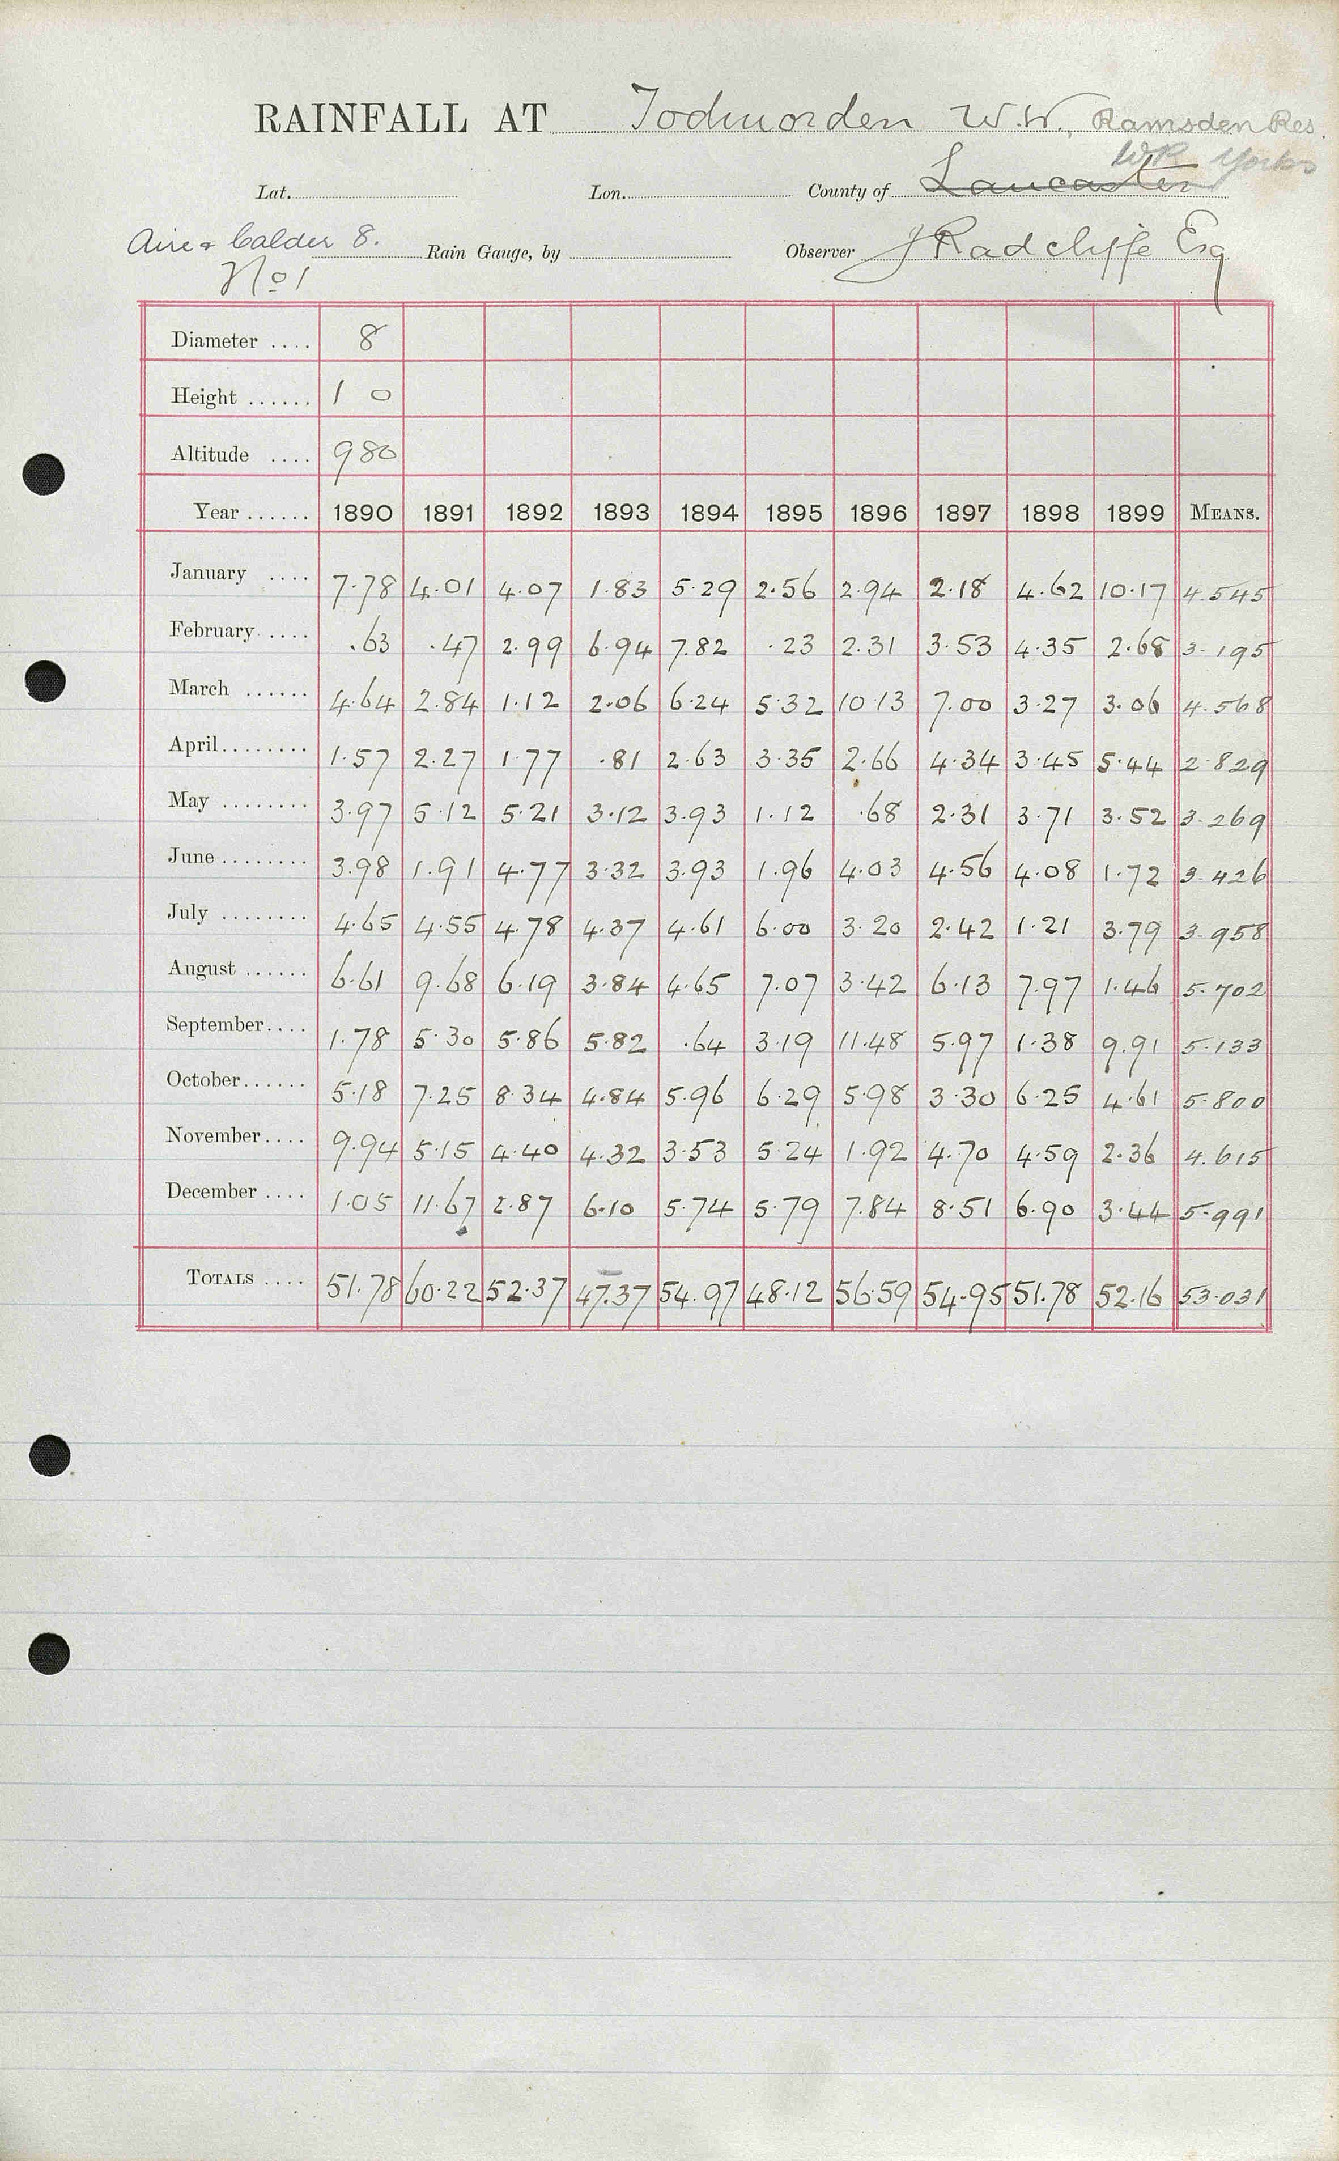 RAINFALL AT Todmorden W.W., Ramsden Res.
WR Yorks
Lat. Lon. County of Lancaster
Aire & Calder 8. Rain Gauge, by Observer J Radcliffe Esq
No 1
Diameter .... 8
Height ...... 1 0
Altitude .... 980
Year ...... 1890 1891 1892 1893 1894 1895 1896 1897 1898 1899 MEANS.
January .... 7.78 4.01 4.07 1.83 5.29 2.56 2.94 2.18 4.62 10.17 4.545
February ..... .63 .47 2.99 6.94 7.82 .23 2.31 3.53 4.35 2.68 3.195
March ...... 4.64 2.84 1.12 2.06 6.24 5.32 10.13 7.00 3.27 3.06 4.568
April ........ 1.57 2.27 1.77 .81 2.63 3.35 2.66 4.34 3.45 5.44 2.829
May ........ 3.97 5.12 5.21 3.12 3.93 1.12 .68 2.31 3.71 3.52 3.269
June ........ 3.98 1.91 4.77 3.32 3.93 1.96 4.03 4.56 4.08 1.72 3.426
July ........ 4.65 4.55 4.78 4.37 4.61 6.00 3.20 2.42 1.21 3.79 3.958
August ...... 6.61 9.68 6.19 3.84 4.65 7.07 3.42 6.13 7.97 1.46 5.702
September .... 1.78 5.30 5.86 5.82 .64 3.19 11.48 5.97 1.38 9.91 5.133
October ...... 5.18 7.25 8.34 4.84 5.96 6.29 5.98 3.30 6.25 4.61 5.800
November .... 9.94 5.15 4.40 4.32 3.53 5.24 1.92 4.70 4.59 2.36 4.615
December .... 1.05 11.67 2.87 6.10 5.74 5.79 7.84 8.51 6.90 3.44 5.991
TOTALS .... 51.78 60.22 52.37 47.37 54.97 48.12 56.59 54.95 51.78 52.16 53.031